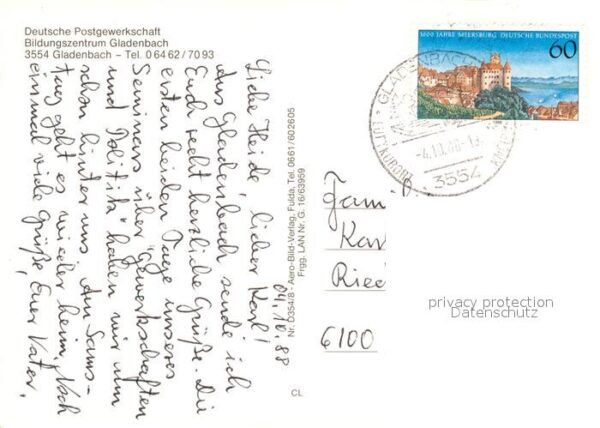 Deutsche Postgewerkschaft
Bildungszentrum Gladenbach
3554 Gladenbach – Tel. 06462/7093
04.10.88
Liebe Heide, lieber Karl!
Aus Gladenbach sende ich
Euch recht herzliche Grüße. Die
ersten beiden Tage unseres
Seminars über "Gewerkschaften
und Politik" haben wir nun
schon hinter uns. Am Sams-
tag geht es wieder heim. Noch
einmal viele Grüße Euer Vater.
Nr. D354/8 - Aero-Bild-Verlag, Fulda, Tel. 0661/602605
Frgg. LAN Nr. G. 16/63959
CL
1000 JAHRE MEERSBURG DEUTSCHE BUNDESPOST
60
GLADENBACH
-4.10.88-13
3554
LUFTKURORT
Fami
Kar
Ried
6100
privacy protection
Datenschutz